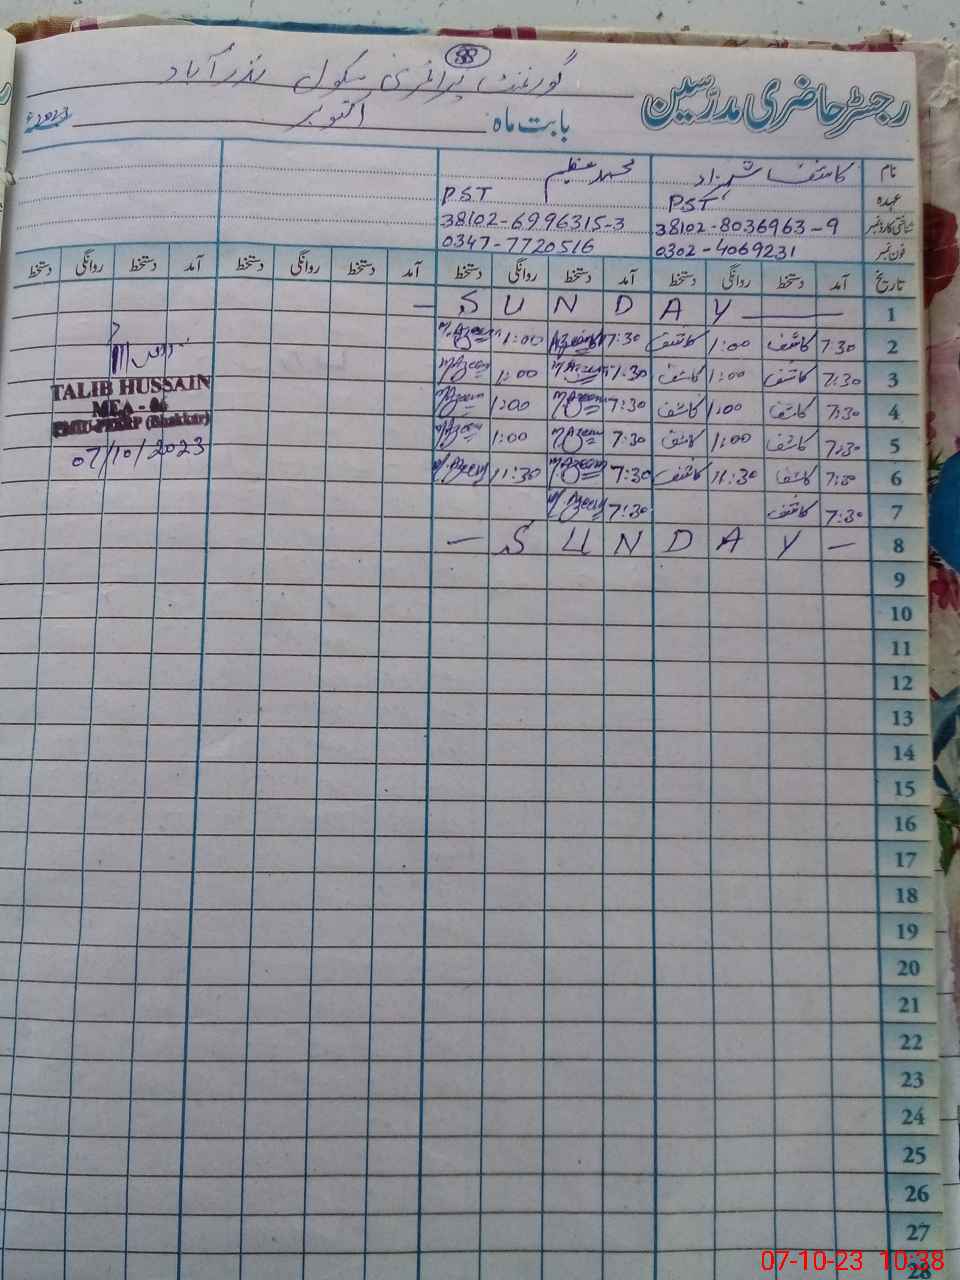 88
گورنمنٹ پرائمری سکول نذر آباد
رجسٹر حاضری مدرسین
بابت ماہ: اکتوبر 2023ء
نام کاشف شہزاد محمد عظیم
عہدہ PST PST
شناختی کارڈ نمبر 38102-8036963-9 38102-6996315-3
فون نمبر 0302-4069231 0347-7720516
تاریخ آمد دستخط روانگی دستخط آمد دستخط روانگی دستخط آمد دستخط روانگی دستخط آمد دستخط روانگی دستخط
1 — S U N D A Y —
2 7:30 کاشف 1:00 کاشف 7:30 M.Azeem 1:00 M.Azeem
3 7:30 کاشف 1:00 کاشف 7:30 M.Azeem 1:00 M.Azeem
4 7:30 کاشف 1:00 کاشف 7:30 M.Azeem 1:00 M.Azeem
5 7:30 کاشف 1:00 کاشف 7:30 M.Azeem 1:00 M.Azeem
6 7:30 کاشف 11:30 کاشف 7:30 M.Azeem 11:30 M.Azeem
7 7:30 کاشف 7:30 M.Azeem
8 — S U N D A Y —
TALIB HUSSAIN
MEA - 06
PMIU-PESRP (Bhakkar)
07/10/2023
9
10
11
12
13
14
15
16
17
18
19
20
21
22
23
24
25
26
27
28
07-10-23 10:38